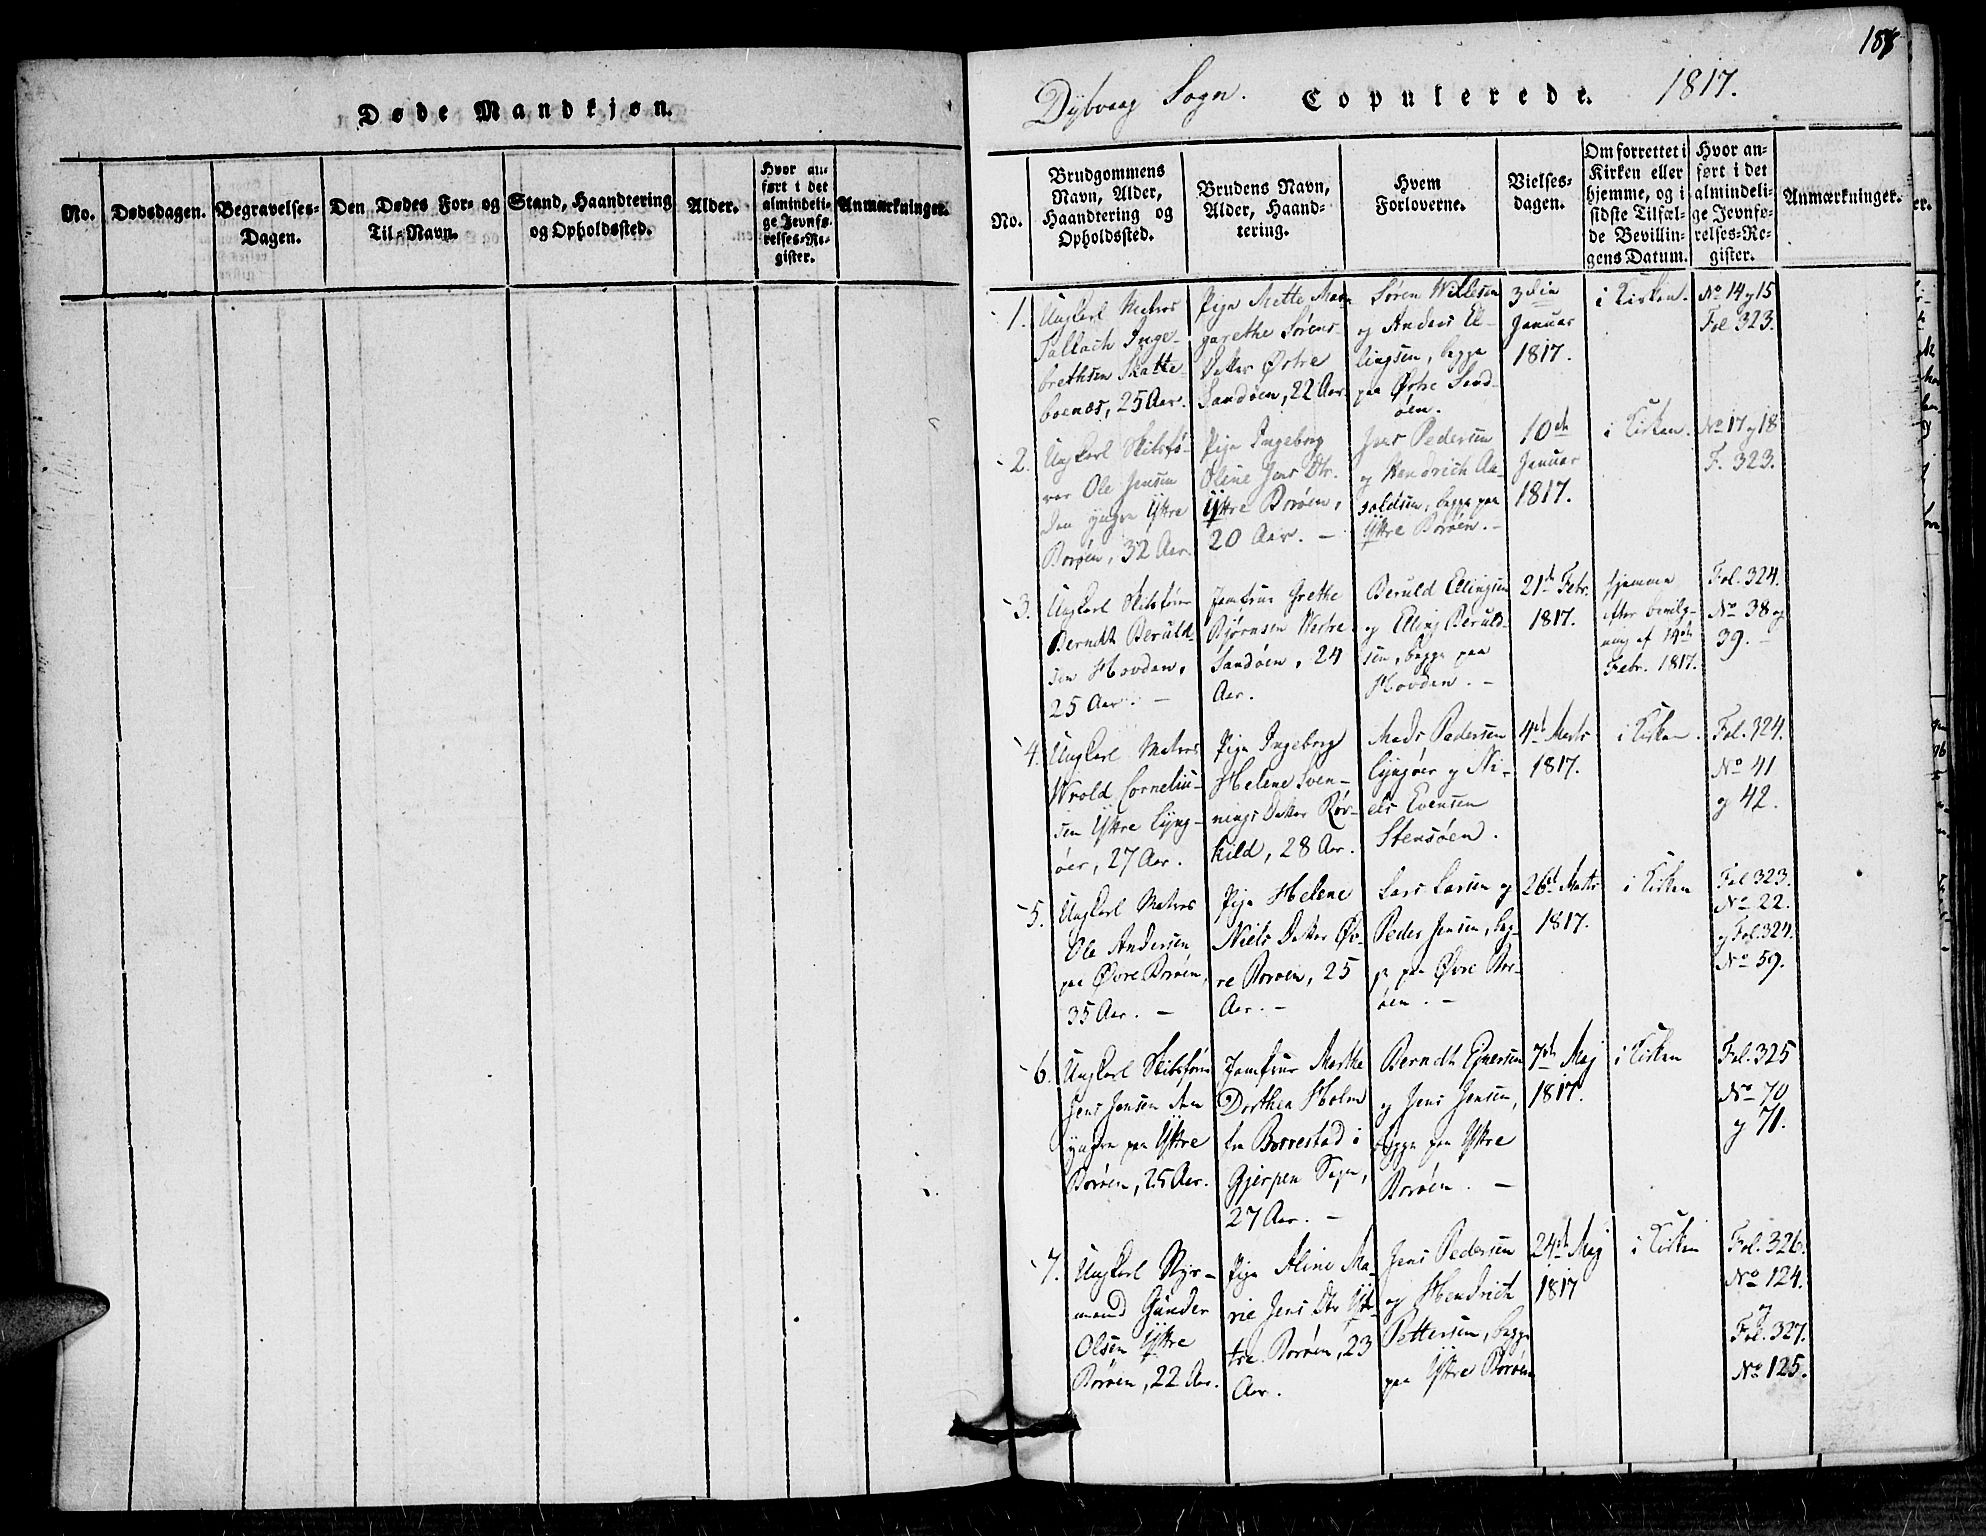 Døde Mandkjøn.
No.
Dødsdagen.
Begravelses-
Dagen.
Den Dødes For- og
Til-Navn.
Stand, Haandtering
og Opholdssted.
Alder.
Hvor an-
ført i det
almindeli-
ge Jevnfø-
relses-Re-
gister.
Anmærkninger.
188
Dybvaag Sogn. Copulerede. 1817.
No.
Brudgommens
Navn, Alder,
Haandtering og
Opholdssted.
Brudens Navn,
Alder, Haand-
tering.
Hvem
Forloverne.
Vielses-
dagen.
Om forrettet i
Kirken eller
hjemme, og i
sidste Tilfæl-
de Bevillin-
gens Datum.
Hvor an-
ført i det
almindeli-
ge Jevnfø-
relses-Re-
gister.
Anmærkninger.
1.
Ungkarl Matros
Sallach Inge-
brethsen Skatte-
boenæs, 25 Aar.
Pige Mette Mar-
garethe Sørens-
Datter Østre
Sandøen, 22 Aar.
Søren Willesen
og Anders El-
lingsen, begge
paa Østre Sand-
øen.
3die
Januar
1817.
i Kirken.
No 14 og 15
Fol 323.
2.
Ungkarl Skibsfø-
rer Ole Jensen
den yngre Yttre
Borøen, 32 Aar.
Pige Ingeborg
Oline Jens Dtr.
Yttre Borøen,
20 Aar. -
Jens Pedersen
og Hendrich Aa-
saldsen, begge paa
Yttre Borøen. -
10de
Januar
1817.
i Kirken.
No 17 og 18
F. 323.
3.
Ungkarl Skibsfører
Berndt Beruld-
sen Hovden,
25 Aar. -
Jomfrue Grethe
Bjørnsen Westre
Sandøen, 24
Aar.
Beruld Ellingsen
og Elling Beruld-
sen, begge paa
Hovden. -
21de Febr.
1817.
hjemme
efter bevilg-
ning af 14de
Febr. 1817.
Fol. 324.
No 38 og
39. -
4.
Ungkarl Matros
Wrold Corneliu-
sen Yttre Lyng-
øer, 27 Aar.
Pige Ingeborg
Helene Sven-
nings Datter Rør-
kild, 28 Aar.
Mads Pedersen
Lyngøer og Ni-
els Evensen
Stensøen.
4de Marts
1817.
i Kirken.
Fol. 324.
No 41
og 42.
5.
Ungkarl Matros
Ole Andersen
paa Øvre Borøen,
35 Aar. -
Pige Helene
Niels Datter Øv-
re Borøen, 25
Aar. -
Lars Larsen og
Peder Jensen, beg-
ge paa Øvre Bor-
øen. -
26de Marts
1817.
i Kirken
Fol 323.
No 22.
og Fol. 324.
No 59.
6.
Ungkarl Skibsfører
Jens Jensen den
yngre paa Yttre
Borøen, 25 Aar.
Jomfrue Marthe
Dorthea Holm
fra Borrestad i
Gjerpen Sogn,
27 Aar. -
Berndt Ejnersen
og Jens Jensen,
begge paa Yttre
Borøen. -
7de Maj
1817.
i Kirken
Fol. 325
No 70
og 71.
7.
Ungkarl Styr-
mand Gunder
Olsen Yttre
Borøen, 22 Aar.
Pige Aline Ma-
rie Jens Dtr Yt-
tre Borøen, 23
Aar.
Jens Pedersen
og Hendrich
Pettersen, begge
paa Yttre Borøen
24de Maj
1817
i Kirken
Fol. 326.
No 124.
og
Fol. 327.
No 125.